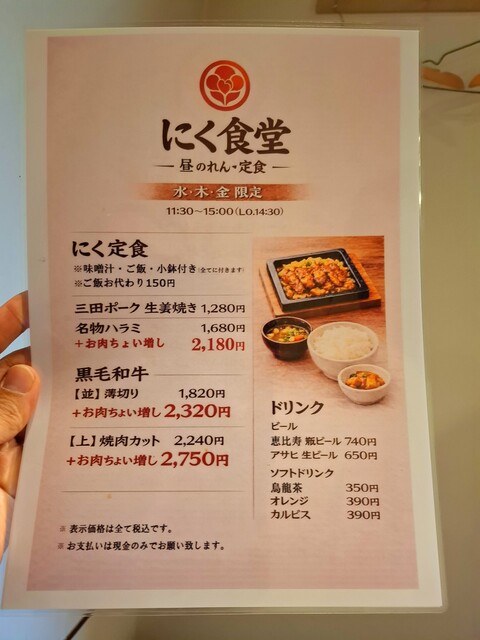 にく食堂
昼のれん・定食
水・木・金 限定
11:30～15:00(L.O.14:30)
にく定食
※味噌汁・ご飯・小鉢付き(全てに付きます)
※ご飯お代わり150円
三田ポーク 生姜焼き 1,280円
名物ハラミ 1,680円
+お肉ちょい増し 2,180円
黒毛和牛
【並】薄切り 1,820円
+お肉ちょい増し 2,320円
【上】焼肉カット 2,240円
+お肉ちょい増し 2,750円
※ 表示価格は全て税込です。
※ お支払いは現金のみでお願い致します。
ドリンク
ビール
恵比寿 瓶ビール 740円
アサヒ 生ビール 650円
ソフトドリンク
烏龍茶 350円
オレンジ 390円
カルピス 390円